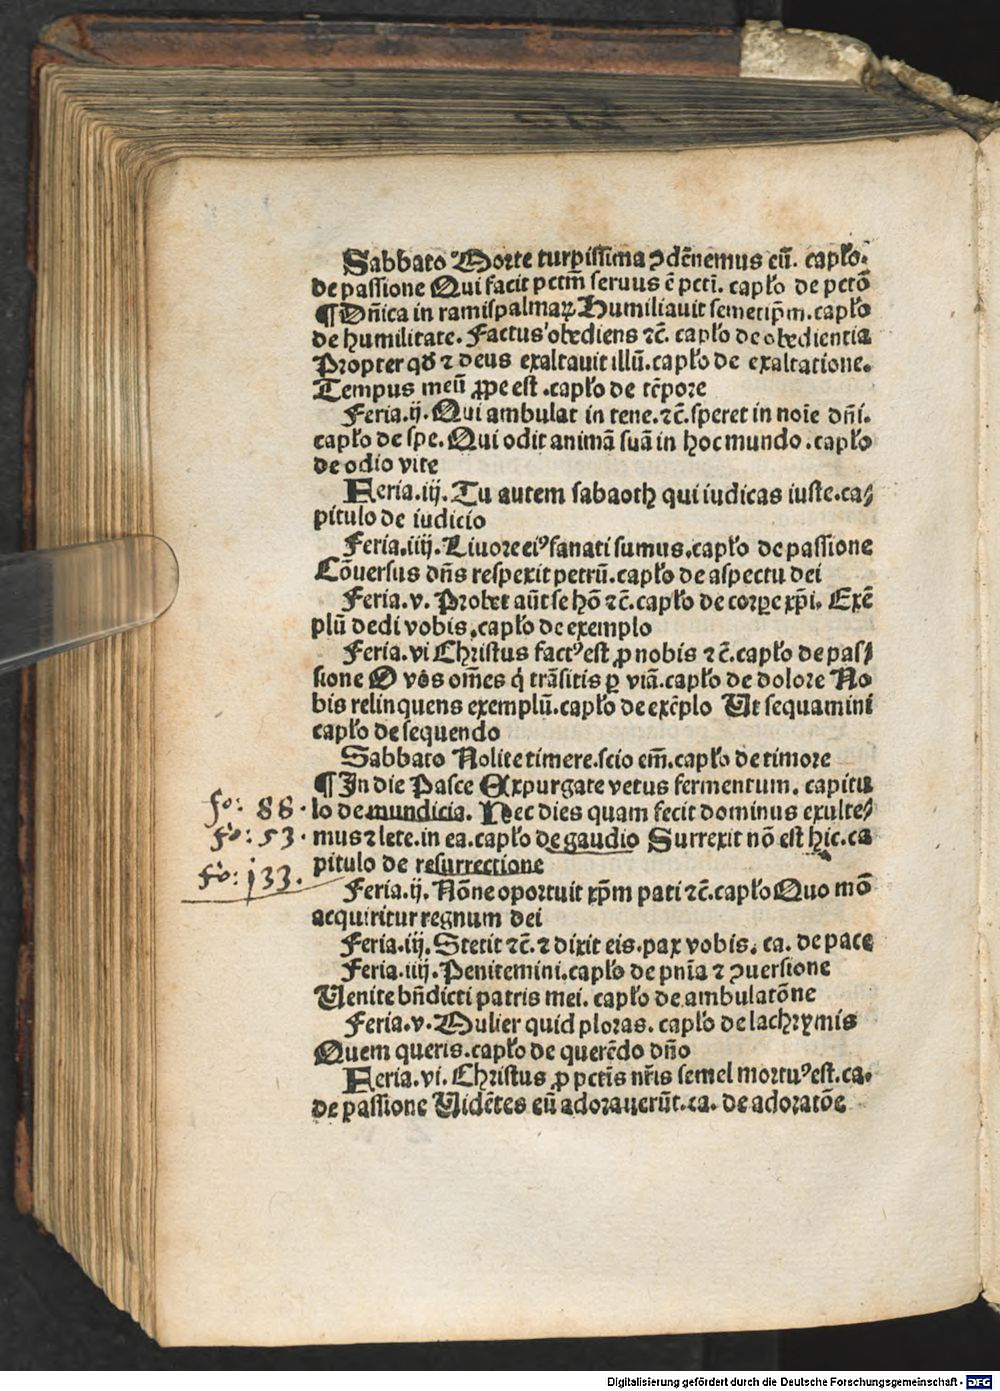 Sabbato Morte turpissima ꝯdēnemus eū. capło.
de passione Qui facit pctm̄ seruus ē pcti. capło de pctō
¶ Dn̄ica in ramispalmaꝝ Humiliauit semetip̄m. capło
de humilitate. Factus obediens ⁊c̄. capło de obedientia
Propter qđ ⁊ deus exaltauit illū. capło de exaltatione.
Tempus meū ꝓpe est .capło de tēpore
Feria .ij. Qui ambulat in tene. ⁊c̄. speret in noīe dn̄i.
capło de spe. Qui odit animā suā in hoc mundo .capło
de odio vite
Feria .iij. Tu autem sabaoth qui iudicas iuste. ca⸗
pitulo de iudicio
Feria .iiij. Liuore eiꝰ sanati sumus. capło de passione
Cōuersus dn̄s respexit petrū. capło de aspectu dei
Feria .v. Probet aūt se hō ⁊c̄. capło de corꝑe xp̄i. Exē
plū dedi vobis. capło de exemplo
Feria .vi Christus factꝰ est ꝓ nobis ⁊c̄. capło de pas⸗
sione O vos om̄es q̇ trāsitis ꝑ viā. capło de dolore No
bis relinquens exemplū. capło de exēplo Ut sequamini
capło de sequendo
Sabbato Nolite timere. scio em̄. capło de timore
¶ In die Pasce Expurgate vetus fermentum. capitu
fo: 88 · lo de mundicia. Hec dies quam fecit dominus exulte⸗
fo: 53 · mus ⁊ lete. in ea. capło de gaudio Surrexit nō est hic. ca
fo: 133. pitulo de resurrectione
Feria .ij. Nōne oportuit xp̄m pati ⁊c̄. capło Quo mō
acquiritur regnum dei
Feria .iij. Stetit ⁊c̄. ⁊ dixit eis. pax vobis. ca. de pace
Feria .iiij. Penitemini. capło de pn̄ia ⁊ ꝯuersione
Venite bn̄dicti patris mei. capło de ambulatōne
Feria .v. Mulier quid ploras. capło de lachrymis
Quem queris. capło de querēdo dn̄o
Feria .vi. Christus ꝓ pctīs nr̄is semel mortuꝰ est. ca.
de passione Vidētes eū adorauerūt. ca. de adoratōe
Digitalisierung gefördert durch die Deutsche Forschungsgemeinschaft - DFG